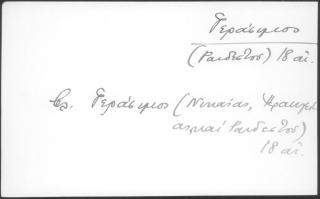 Γεράσιμος
(Ραιδεστοῦ) 18 αἰ.
Βλ. Γεράσιμος (Νικαίας, Ἡρακλεί
ας καὶ Ραιδεστοῦ)
18 αἰ.